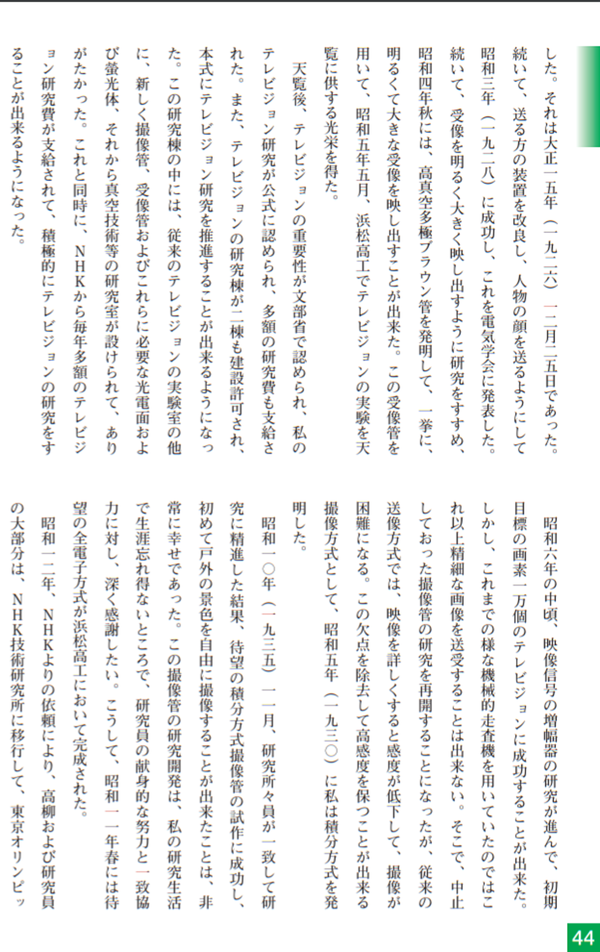 した。それは大正一五年（一九二六）一二月二五日であった。
続いて、送る方の装置を改良し、人物の顔を送るようにして
昭和三年（一九二八）に成功し、これを電気学会に発表した。
続いて、受像を明るく大きく映し出すように研究をすすめ、
昭和四年秋には、高真空多極ブラウン管を発明して、一挙に、
明るくて大きな受像を映し出すことが出来た。この受像管を
用いて、昭和五年五月、浜松高工でテレビジョンの実験を天
覧に供する光栄を得た。
天覧後、テレビジョンの重要性が文部省で認められ、私の
テレビジョン研究が公式に認められ、多額の研究費も支給さ
れた。また、テレビジョンの研究棟が二棟も建設許可され、
本式にテレビジョン研究を推進することが出来るようになっ
た。この研究棟の中には、従来のテレビジョンの実験室の他
に、新しく撮像管、受像管およびこれらに必要な光電面およ
び螢光体、それから真空技術等の研究室が設けられて、あり
がたかった。これと同時に、NHKから毎年多額のテレビジ
ョン研究費が支給されて、積極的にテレビジョンの研究をす
ることが出来るようになった。
昭和六年の中頃、映像信号の増幅器の研究が進んで、初期
目標の画素一万個のテレビジョンに成功することが出来た。
しかし、これまでの様な機械的走査機を用いていたのではこ
れ以上精細な画像を送受することは出来ない。そこで、中止
しておった撮像管の研究を再開することになったが、従来の
送像方式では、映像を詳しくすると感度が低下して、撮像が
困難になる。この欠点を除去して高感度を保つことが出来る
撮像方式として、昭和五年（一九三〇）に私は積分方式を発
明した。
昭和一〇年（一九三五）一一月、研究所々員が一致して研
究に精進した結果、待望の積分方式撮像管の試作に成功し、
初めて戸外の景色を自由に撮像することが出来たことは、非
常に幸せであった。この撮像管の研究開発は、私の研究生活
で生涯忘れ得ないところで、研究員の献身的な努力と一致協
力に対し、深く感謝したい。こうして、昭和一一年春には待
望の全電子方式が浜松高工において完成された。
昭和一二年、NHKよりの依頼により、高柳および研究員
の大部分は、NHK技術研究所に移行して、東京オリンピッ
44